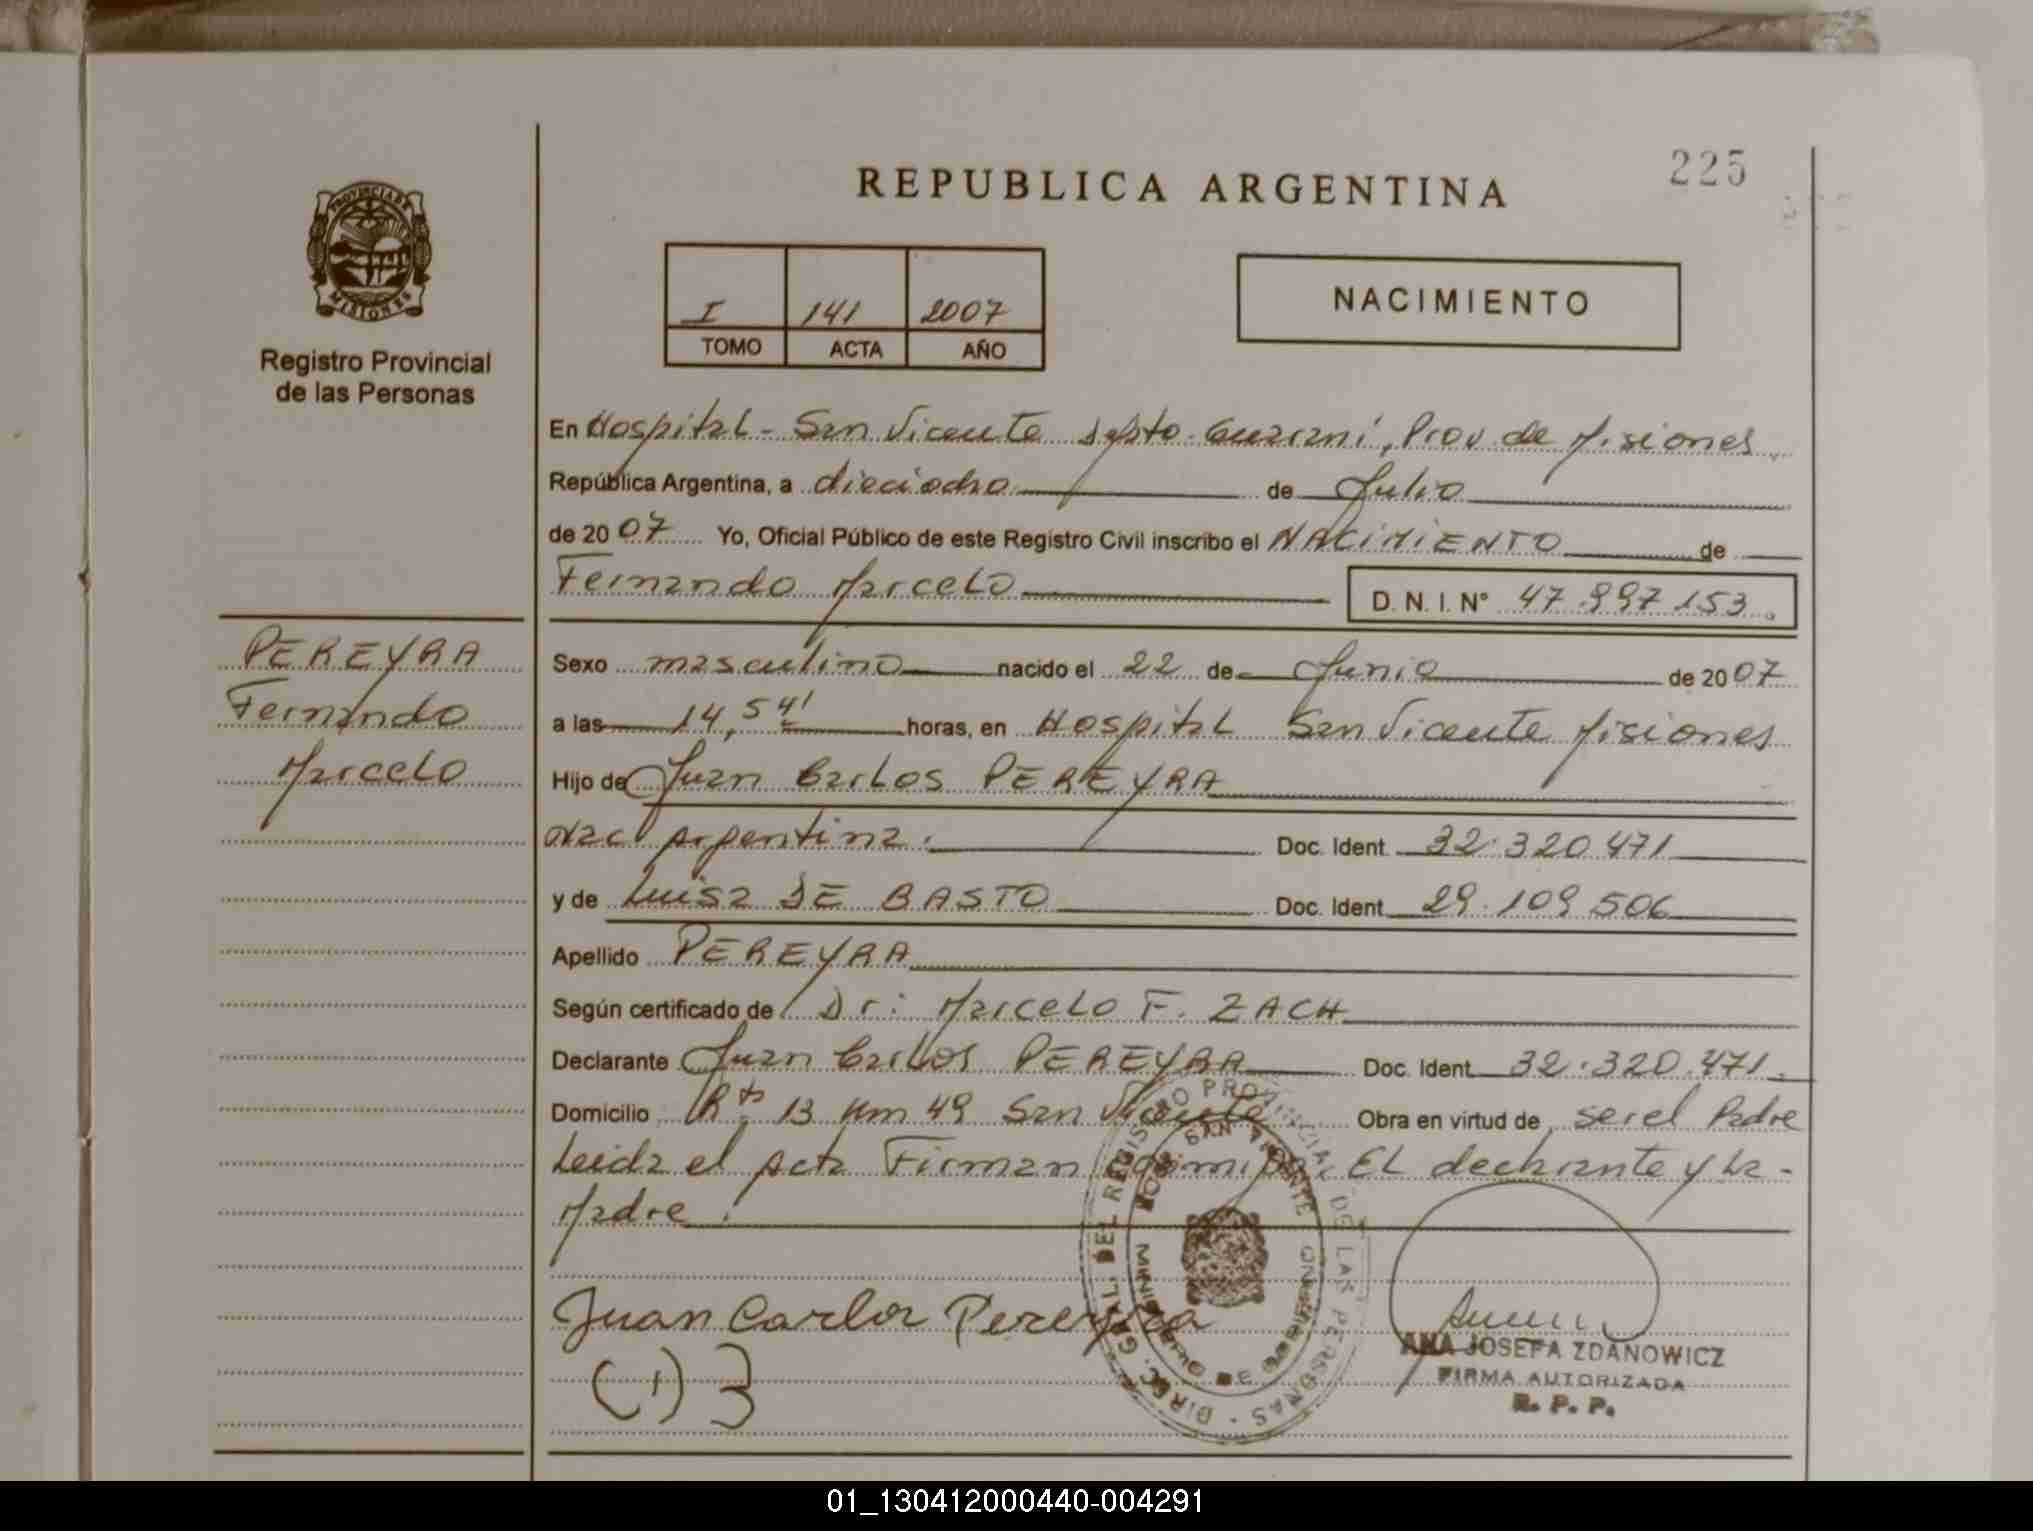 225
REPUBLICA ARGENTINA
PROVINCIA DE
MISIONES
Registro Provincial
de las Personas
I 141 2007
TOMO ACTA AÑO
NACIMIENTO
En Hospital - San Vicente Dpto. Guaraní, Prov. de Misiones
República Argentina, a dieciocho de Julio
de 2007 Yo, Oficial Público de este Registro Civil inscribo el NACIMIENTO de
Fernando Marcelo D. N. I. N° 47.997.153.
PEREYRA
Fernando
Marcelo
Sexo masculino nacido el 22 de Junio de 2007
a las 14,54' horas, en Hospital San Vicente Misiones
Hijo de Juan Carlos PEREYRA
Nac Argentina. Doc. Ident. 32.320.471
y de Luisa DE BASTO Doc. Ident. 29.109.506
Apellido PEREYRA
Según certificado de Dr: Marcelo F. ZACH
Declarante Juan Carlos PEREYRA Doc. Ident. 32.320.471.
Domicilio Rta 13 Km 49 San Vicente Obra en virtud de ser el Padre
Leida el Acta Firman conmigo, EL declarante y La -
Madre.
Juan Carlos Pereyra
(1) 3
DIREC. GRAL. DEL REGISTRO PROVINCIAL DE LAS PERSONAS
SAN VICENTE
ANA JOSEFA ZDANOWICZ
FIRMA AUTORIZADA
R. P. P.
01_130412000440-004291